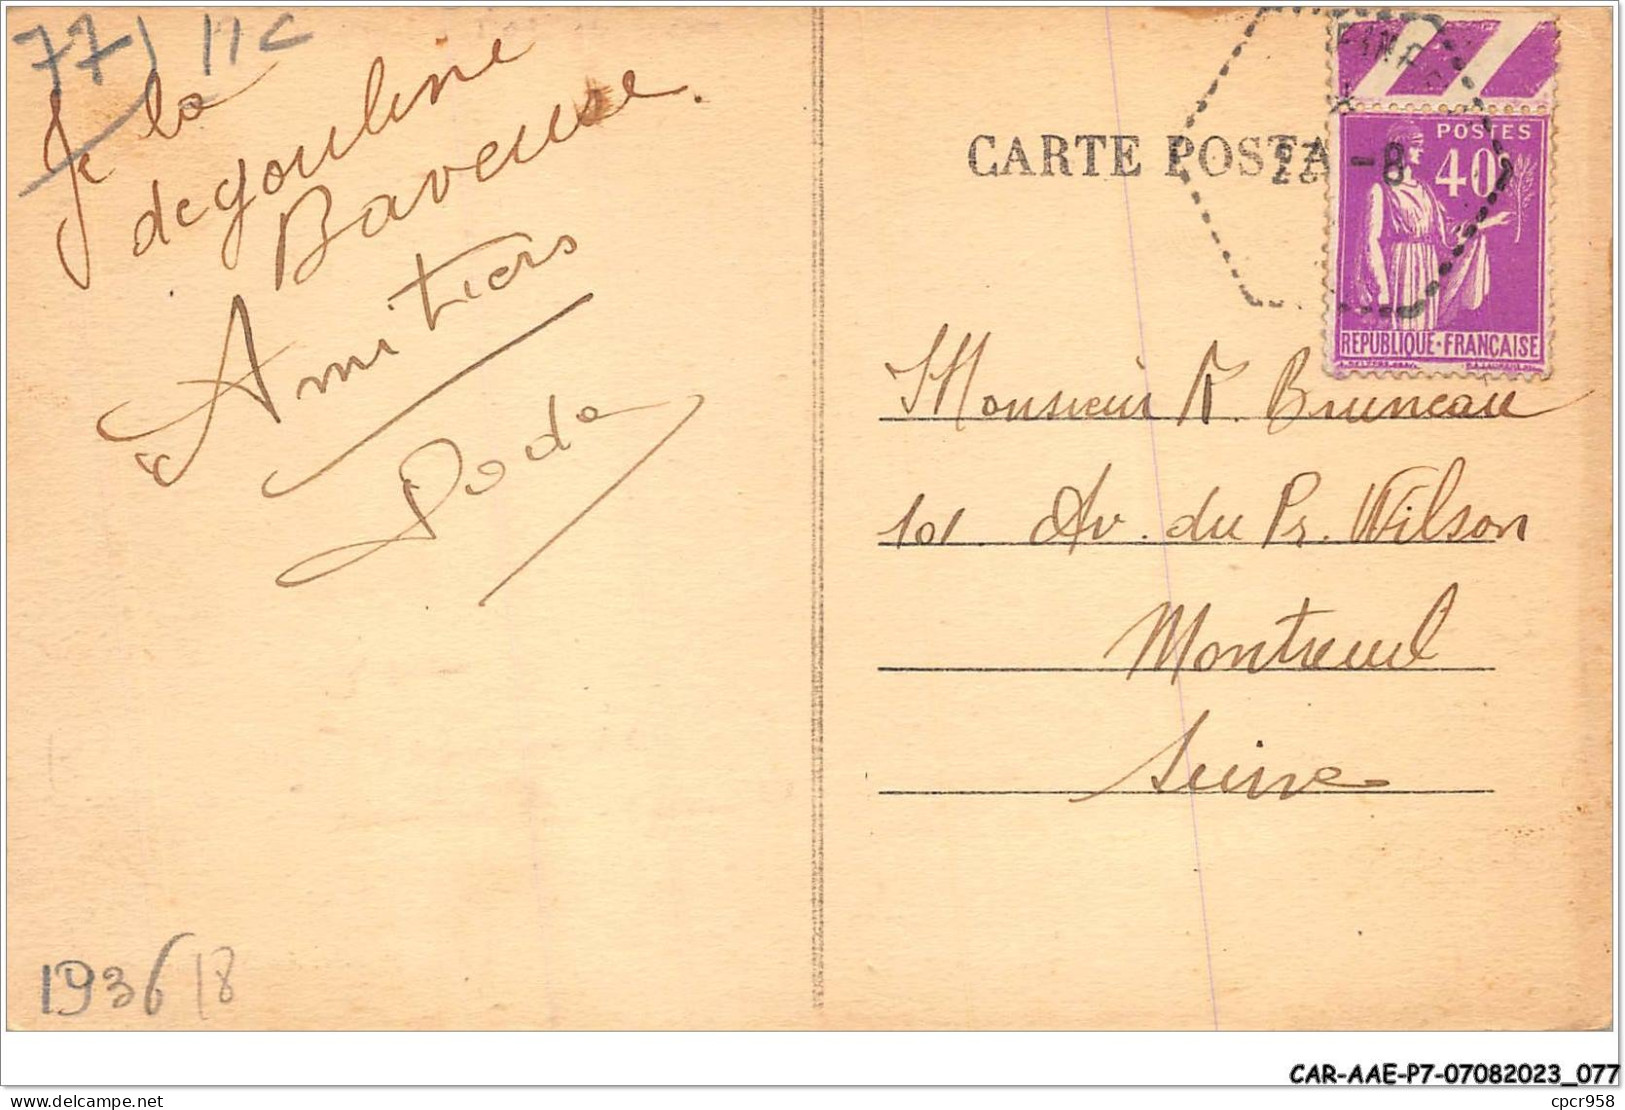 77) 11C
Je la
degouline
Baveuse.
Amitiers
Dode
1936 / 8
CARTE POSTA
-8
POSTES
40
REPUBLIQUE·FRANÇAISE
Monsieur A. Bruneau
101 Av. du Pr. Wilson
Montreuil
Seine
CAR-AAE-P7-07082023_077
cpcr958